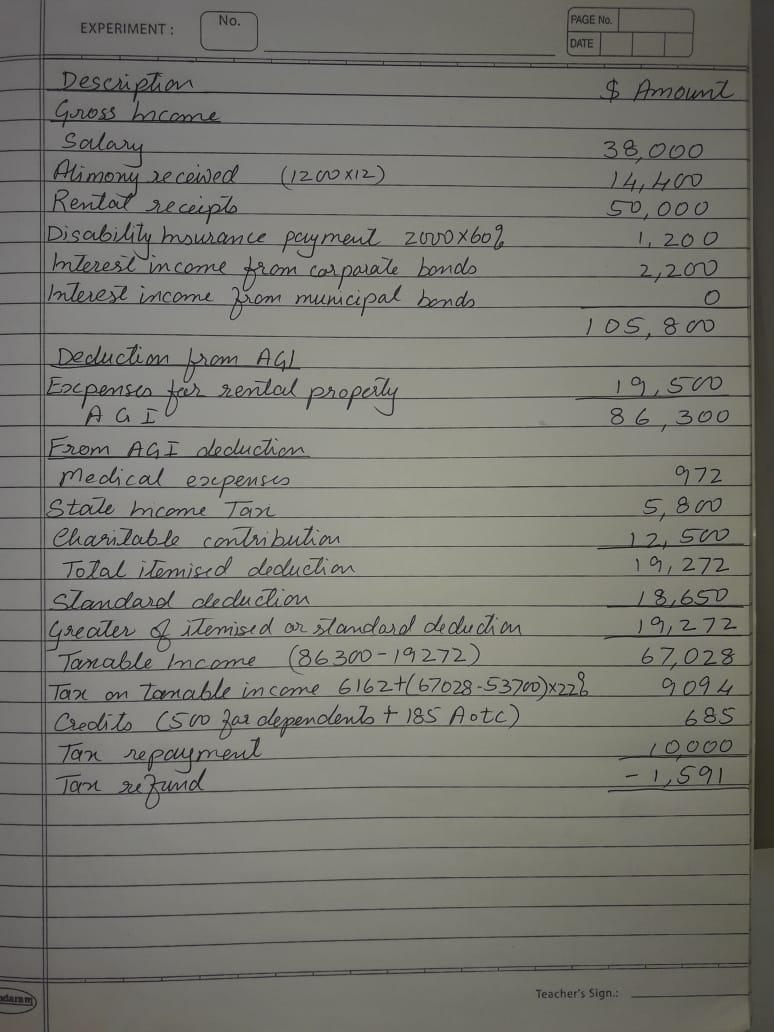 EXPERIMENT : No. PAGE No.
DATE
Description $ Amount
Gross Income
Salary 38,000
Alimony received (1200x12) 14,400
Rental receipts 50,000
Disability Insurance payment 2000x60% 1,200
Interest income from corporate bonds 2,200
Interest income from municipal bonds 0
105,800
Deduction from AGI
Expenses for rental property 19,500
AGI 86,300
From AGI deduction
Medical expenses 972
State Income Tax 5,800
Charitable contribution 12,500
Total itemised deduction 19,272
Standard deduction 18,650
Greater of itemised or standard deduction 19,272
Taxable Income (86300-19272) 67,028
Tax on taxable income 6162+(67028-53700)x22% 9094
Credits (500 for dependents + 185 Aotc) 685
Tax repayment 10,000
Tax refund -1,591
Teacher's Sign.: